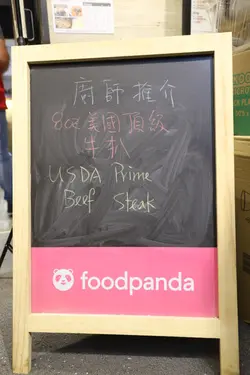 廚師推介
8oz美國頂級
牛扒
USDA Prime
Beef Steak
foodpanda